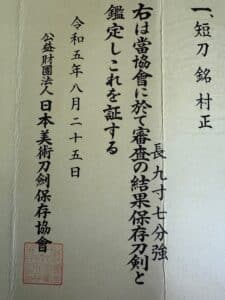 一、短刀 銘 村正
長九寸七分強
右は當協會に於て審査の結果保存刀剣と
鑑定しこれを証する
令和五年八月二十五日
公益財團法人日本美術刀劍保存協會